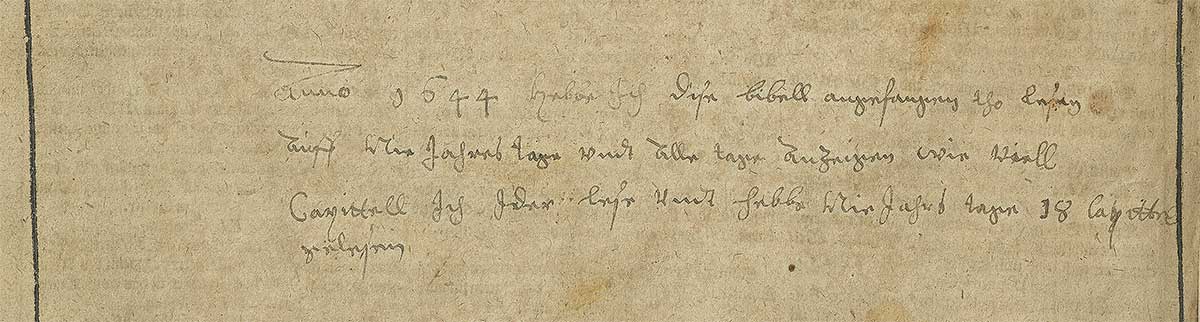 Anno 1644 hebbe Ich dise bibell angefangen tho lesen
auff Nie Jahres tage vndt alle tage anzeigen wie viell
Capittell Ich Ider lese vndt hebbe Nie Jahrs tage 18 Capittel
gelesein